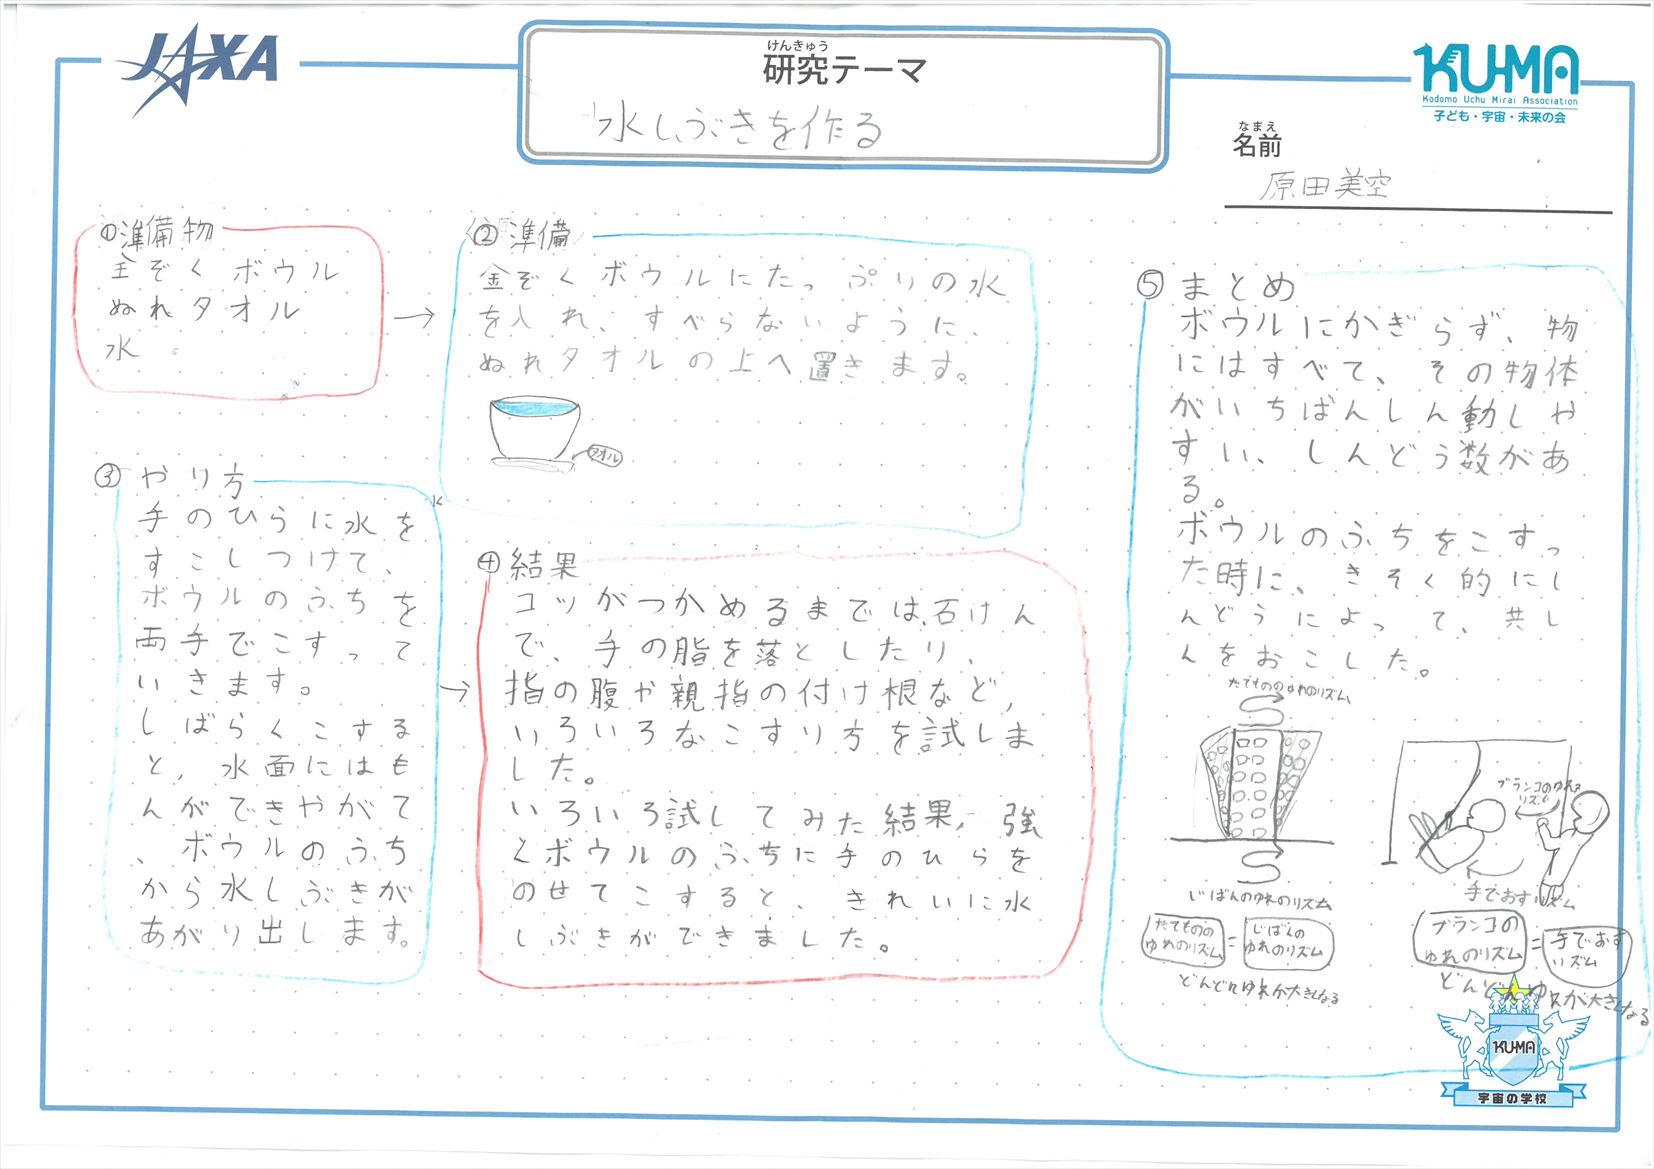 JAXA
けんきゅう
研究テーマ
水しぶきを作る
KU-MA
Kodomo Uchu Mirai Association
子ども・宇宙・未来の会
なまえ
名前
原田美空
①準備物
金ぞくボウル
ぬれタオル
水
②準備
金ぞくボウルにたっぷりの水
を入れ、すべらないように、
ぬれタオルの上へ置きます。
タオル
③やり方
手のひらに水を
すこしつけて、
ボウルのふちを
両手でこすって
いきます。
しばらくこする
と,水面にはも
んができやがて
、ボウルのふち
から水しぶきが
あがり出します。
④結果
コツがつかめるまでは石けん
で、手の脂を落としたり、
指の腹や親指の付け根など,
いろいろなこすり方を試しま
した。
いろいろ試してみた結果,強
くボウルのふちに手のひらを
のせてこすると、きれいに水
しぶきができました。
⑤まとめ
ボウルにかぎらず、物
にはすべて、その物体
がいちばんしん動しや
すい、しんどう数があ
る。
ボウルのふちをこすっ
た時に、きそく的にし
んどうによって、共し
んをおこした。
たてもののゆれのリズム
じばんのゆれのリズム
たてものの
ゆれのリズム
=
じばんの
ゆれのリズム
どんどんゆれが大きくなる
ブランコのゆれの
リズム
手でおすリズム
ブランコの
ゆれのリズム
=
手でおす
リズム
どんどんゆれが大きくなる
KU-MA
宇宙の学校